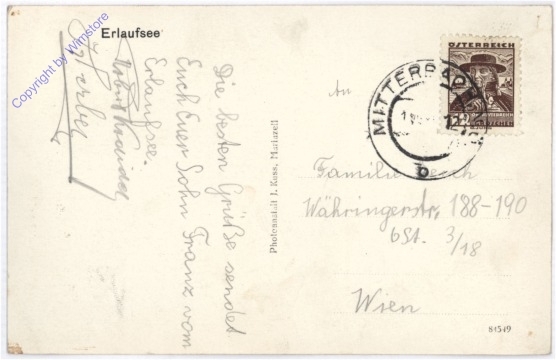 Erlaufsee
Copyright by Wimstore
Die besten Grüße sendet
Euch Euer Sohn Franz vom
Erlaufsee.
Photoanstalt J. Kuss, Mariazell
An
ÖSTERREICH
MITTERBACH
b
Familie
Währingerstr. 188-190
6St. 3/18
Wien
84549